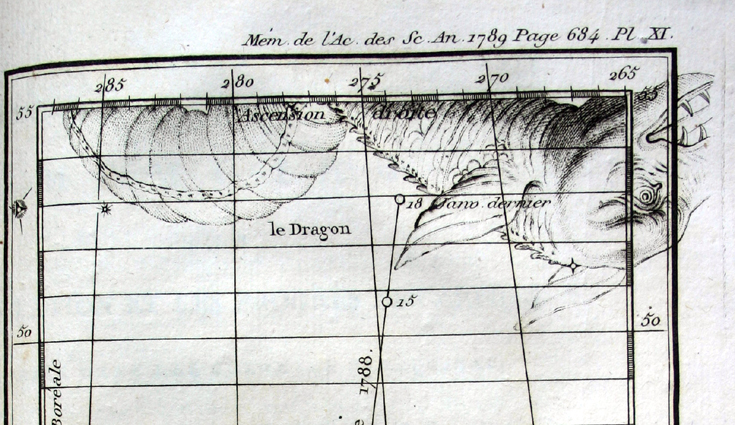 Mém. de l'Ac. des Sc. An. 1789 Page 684. Pl. XI.
285 280 275 270 265
55 55
Ascension droite
18 Janv. dernier
le Dragon
15
50 50
1788.
Boréale